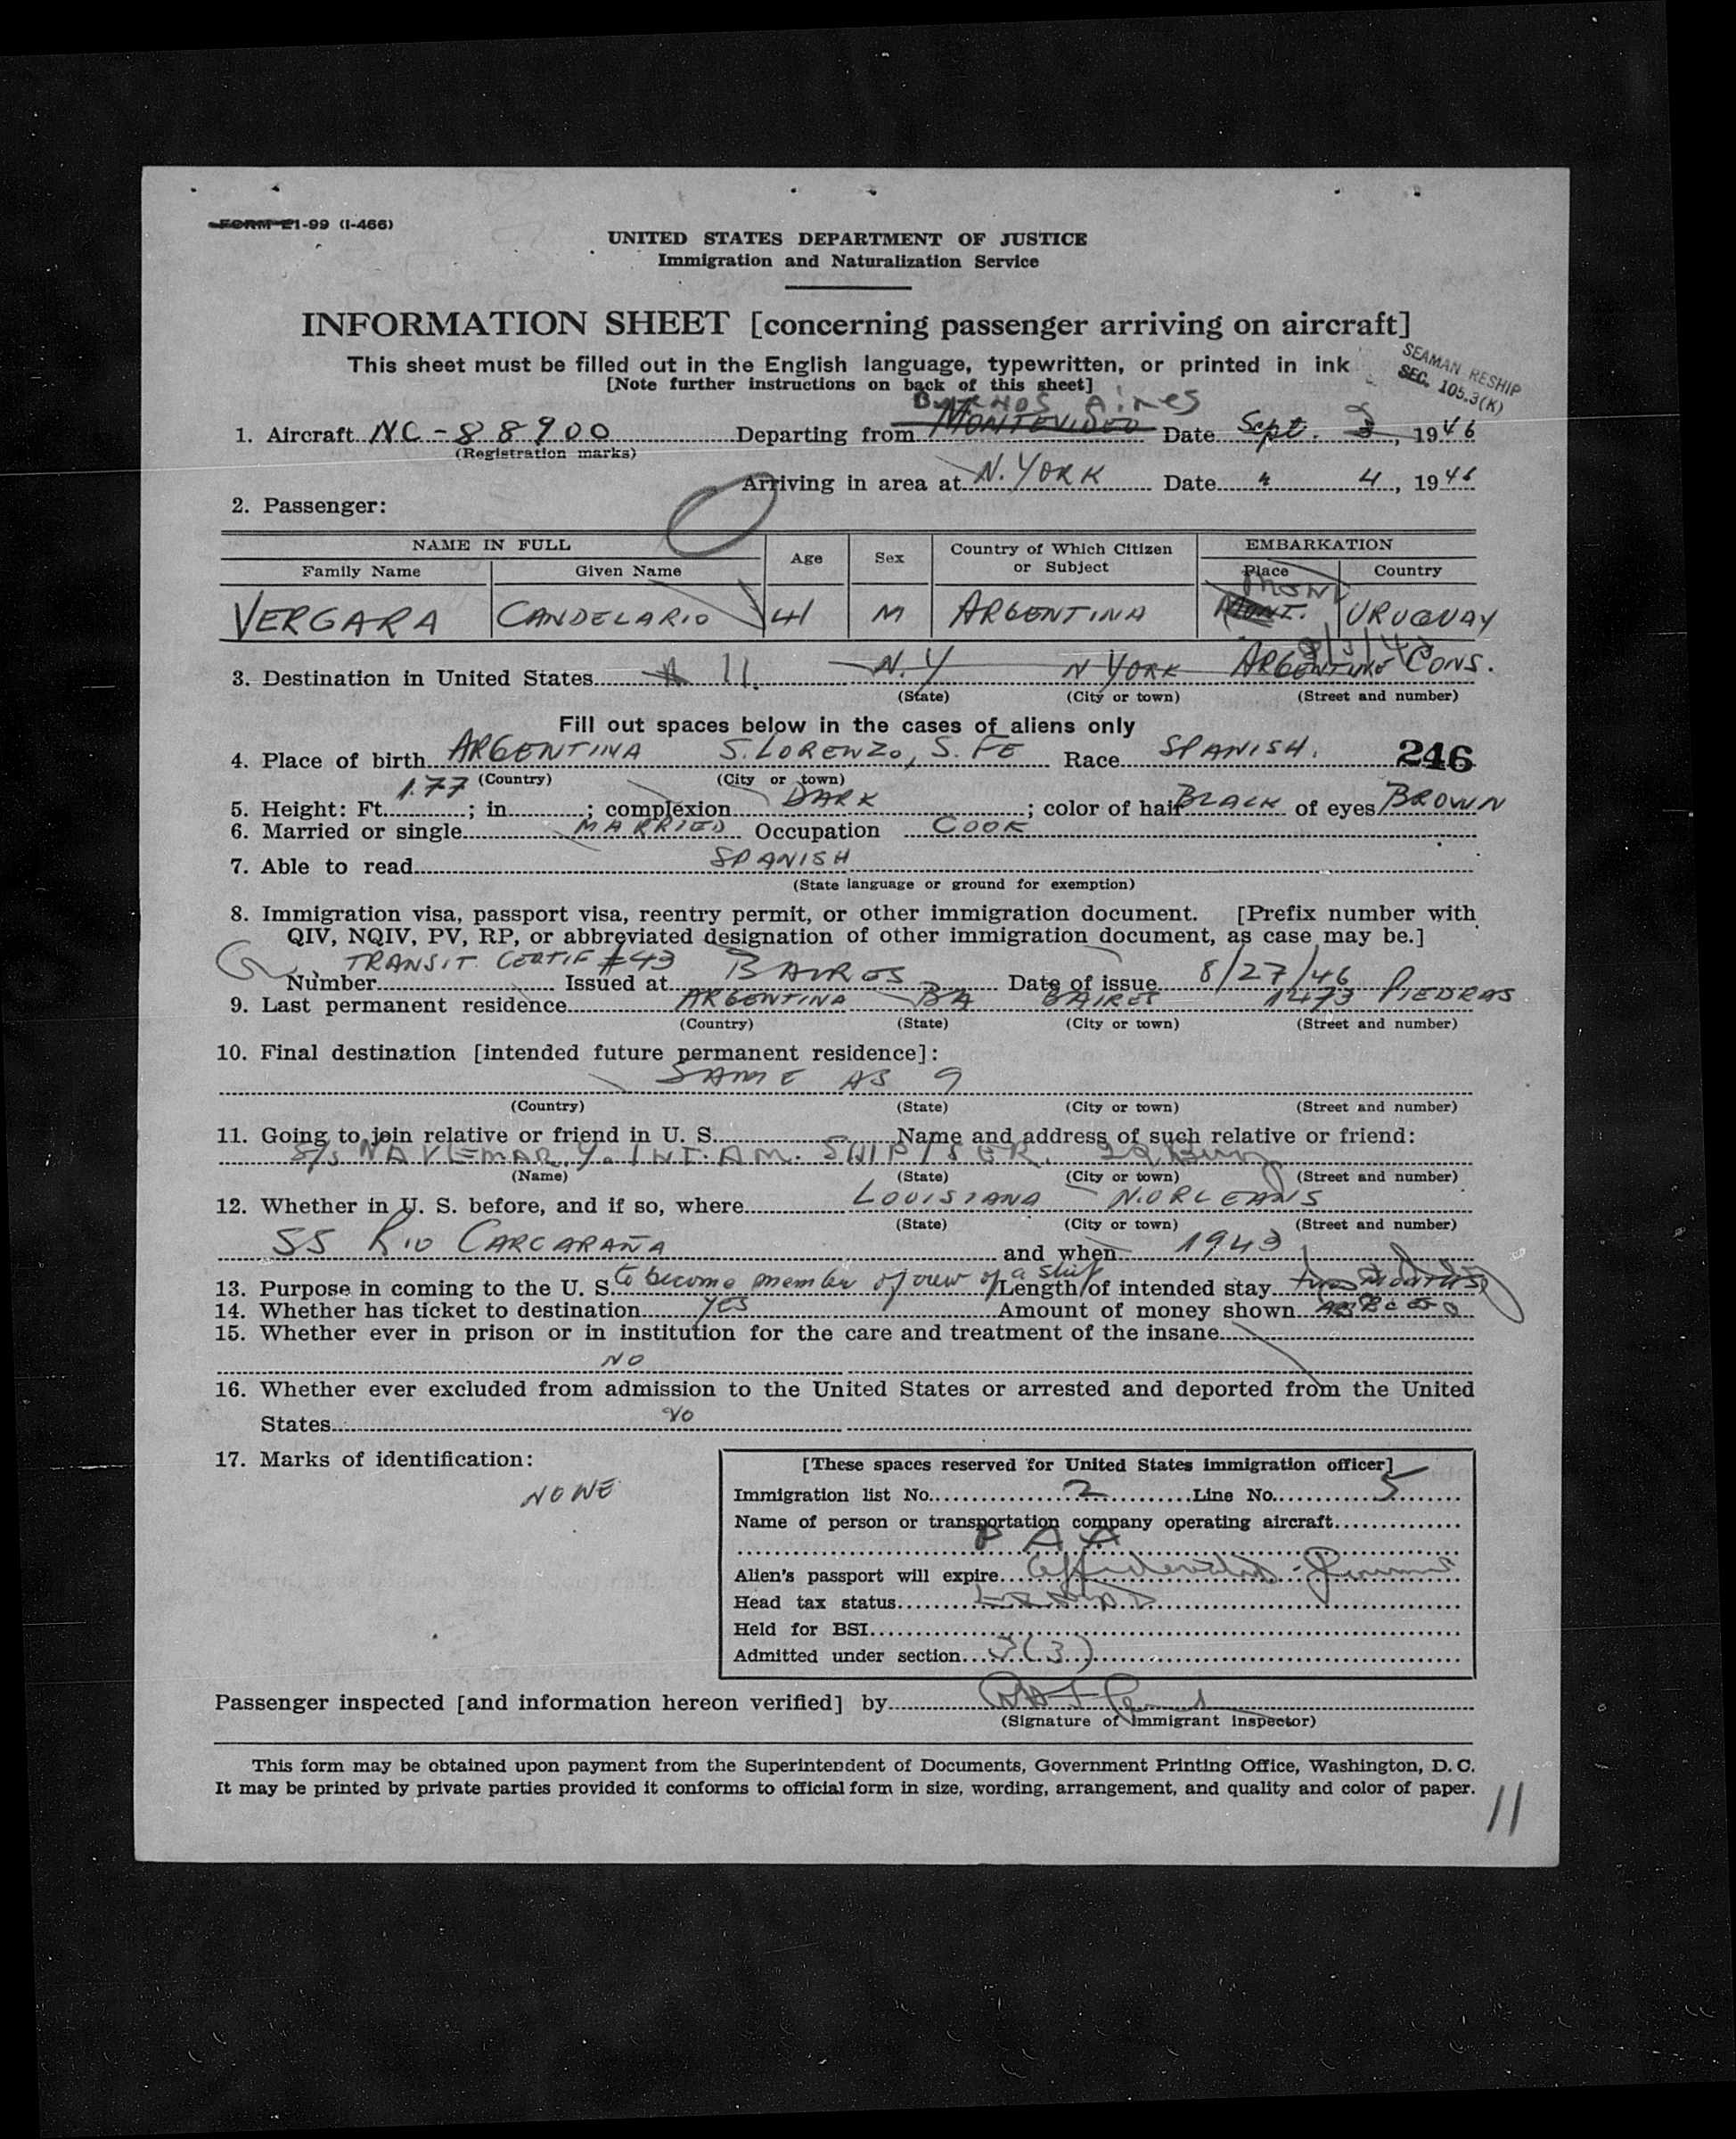 FORM 21-99 (I-466)
UNITED STATES DEPARTMENT OF JUSTICE
Immigration and Naturalization Service
INFORMATION SHEET [concerning passenger arriving on aircraft]
This sheet must be filled out in the English language, typewritten, or printed in ink
[Note further instructions on back of this sheet]
SEAMAN RESHIP
SEC. 105.3(K)
BUENOS AIRES
1. Aircraft NC-88900 Departing from MONTEVIDEO Date Sept. 2, 1946
(Registration marks)
Arriving in area at N. YORK Date " 4, 1946
2. Passenger:
NAME IN FULL Age Sex Country of Which Citizen or Subject EMBARKATION
Family Name Given Name Place Country
VERGARA CANDELARIO 41 M ARGENTINA MONT. URUGUAY
3. Destination in United States 11. N.Y N YORK ARGENTINE CONS.
(State) (City or town) (Street and number)
Fill out spaces below in the cases of aliens only
4. Place of birth ARGENTINA S. LORENZO, S. FE Race SPANISH. 246
(Country) (City or town)
5. Height: Ft. 1.77; in.; complexion DARK; color of hair BLACK of eyes BROWN
6. Married or single MARRIED Occupation COOK
7. Able to read SPANISH
(State language or ground for exemption)
8. Immigration visa, passport visa, reentry permit, or other immigration document. [Prefix number with
QIV, NQIV, PV, RP, or abbreviated designation of other immigration document, as case may be.]
TRANSIT CERTIF #43
Number Issued at BAIRES Date of issue 8/27/46
9. Last permanent residence ARGENTINA BA BAIRES 1473 PIEDRAS
(Country) (State) (City or town) (Street and number)
10. Final destination [intended future permanent residence]:
SAME AS 9
(Country) (State) (City or town) (Street and number)
11. Going to join relative or friend in U. S. Name and address of such relative or friend:
S/S NAVEMAR, INT. AM. SHIP
(Name) (State) (City or town) (Street and number)
12. Whether in U. S. before, and if so, where LOUISIANA N. ORLEANS
(State) (City or town) (Street and number)
SS RIO CARCARAÑA and when 1943
13. Purpose in coming to the U. S. to become member of crew of a ship Length of intended stay two months
14. Whether has ticket to destination YES Amount of money shown
15. Whether ever in prison or in institution for the care and treatment of the insane
NO
16. Whether ever excluded from admission to the United States or arrested and deported from the United
States NO
17. Marks of identification:
NONE
[These spaces reserved for United States immigration officer]
Immigration list No. 2 Line No. 5
Name of person or transportation company operating aircraft
P A A
Alien's passport will expire
Head tax status
Held for BSI
Admitted under section 3(3)
Passenger inspected [and information hereon verified] by
(Signature of immigrant inspector)
This form may be obtained upon payment from the Superintendent of Documents, Government Printing Office, Washington, D. C.
It may be printed by private parties provided it conforms to official form in size, wording, arrangement, and quality and color of paper.
11